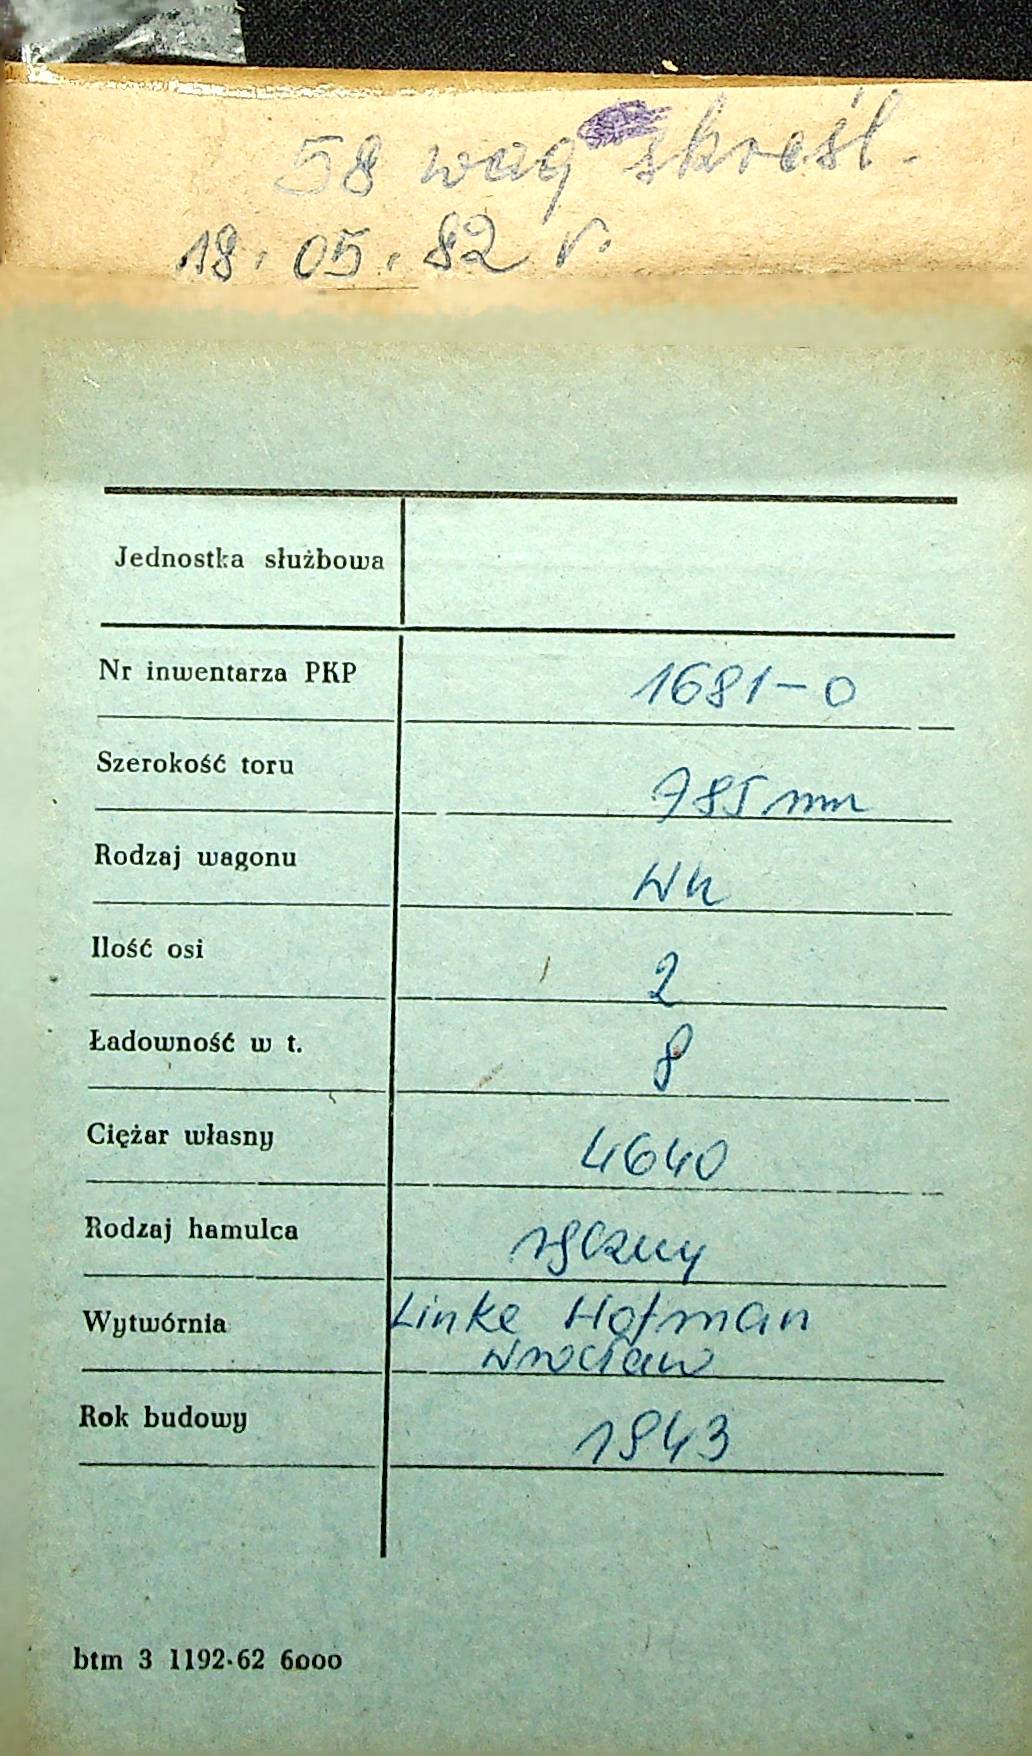 58 wag skreśl.
18.05.82 r.
Jednostka służbowa
Nr inwentarza PKP 1681-0
Szerokość toru 785 mm
Rodzaj wagonu Wk
Ilość osi 2
Ładowność w t. 8
Ciężar własny 4640
Rodzaj hamulca ręczny
Wytwórnia Linke Hofman
Wrocław
Rok budowy 1943
btm 3 1192-62 6000